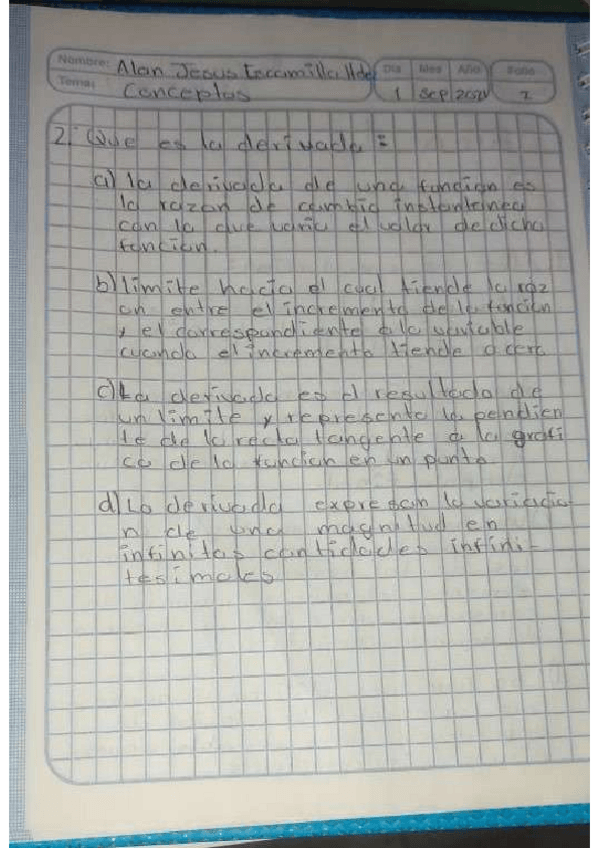 Nombre: Alan Jesus Escamilla Hdez Dia Mes Año Folio
Tema: Conceptos 1 Sep 2021 2
2. Que es la derivada =
a) la derivada de una función es
la razon de cambio instantanea
con la que varia el valor de dicha
función.
b) límite hacia el cual tiende la raz
on entre el incremento de la función
y el correspondiente a la variable
cuando el incremento tiende a cero
c) La derivada es el resultado de
un límite y representa la pendien
te de la recta tangente a la grafi
ca de la función en un punto
d) La derivada expresan la variacio
n de una magnitud en
infinitas cantidades infini-
tesimales